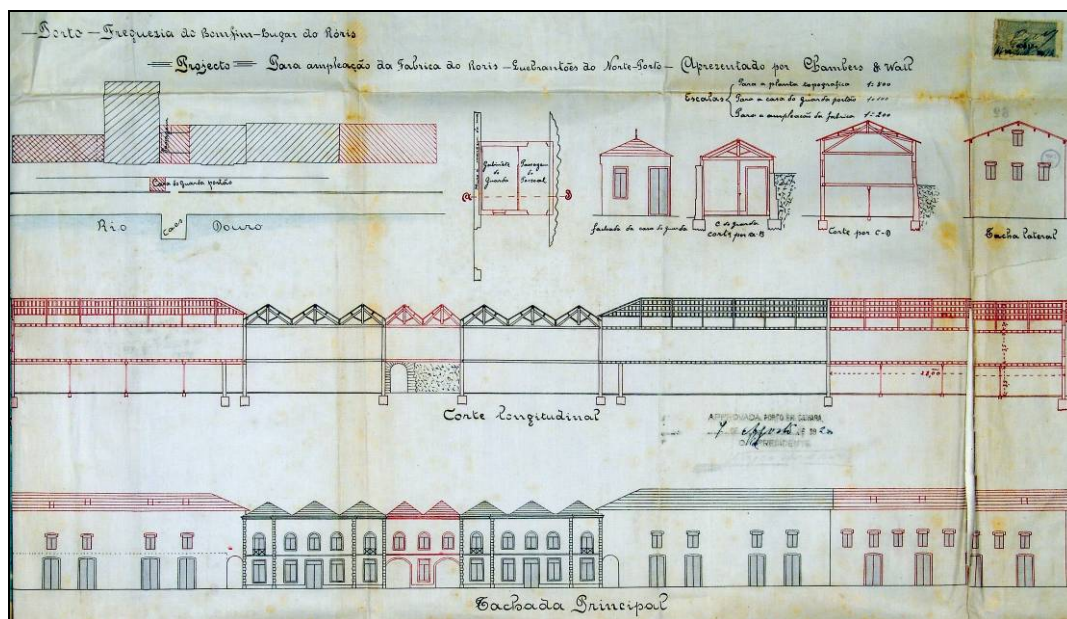 Porto — Freguesia do Bomfim — Lugar do Róris
Projecto — Para ampleação da Fabrica do Roris — Quebrantões do Norte-Porto — Apresentado por Chambers & Wall
Escalas
Para a planta topográfica 1:800
Para a casa do guarda portão 1:100
Para a ampleação da fabrica 1:200
Casa do Guarda portão
Rio Caes Douro
Gabinete do Guarda
Passagem do Pessoal
a B
fachada da casa do guarda
C. do guarda
corte por a-B
Corte por C-D
Fachada lateral
Corte longitudinal
APPROVADA. PORTO EM CAMARA
7 de Agosto de 192
O PRESIDENTE
Fachada Principal